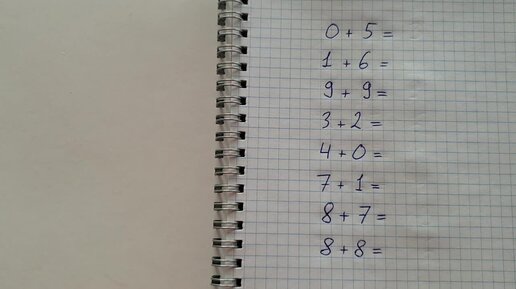 0 + 5 =
1 + 6 =
9 + 9 =
3 + 2 =
4 + 0 =
7 + 1 =
8 + 7 =
8 + 8 =